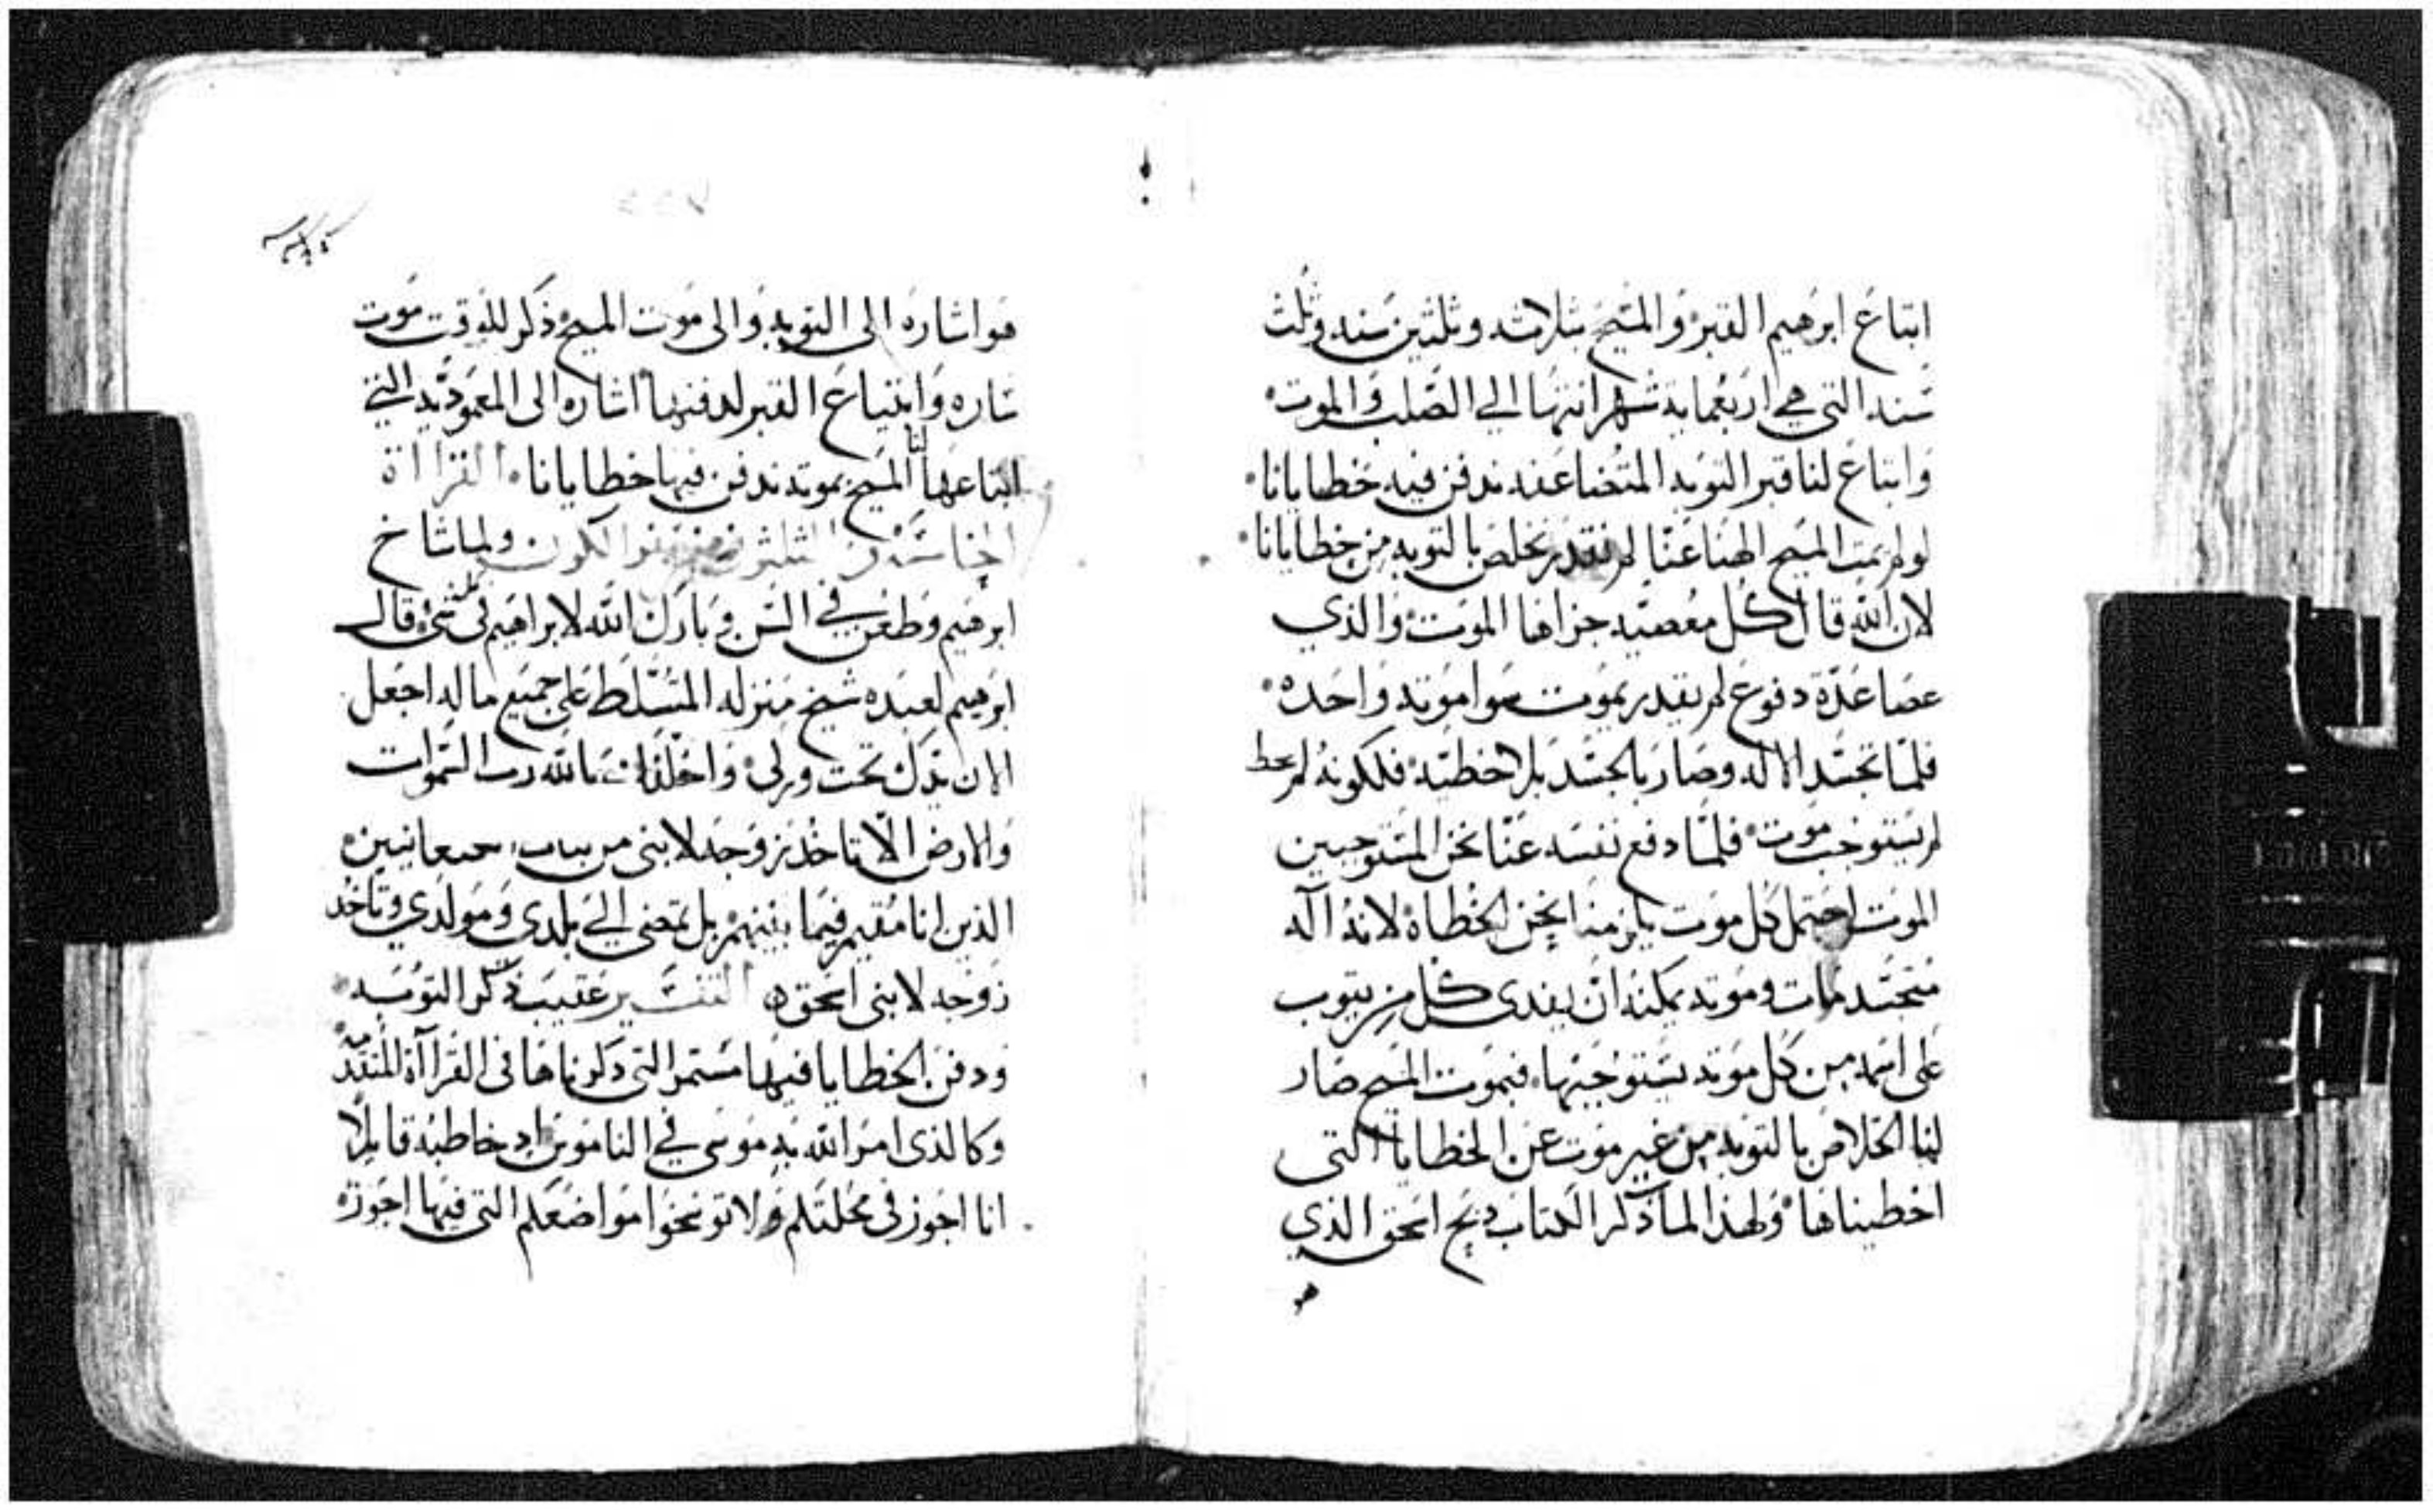 ابتاع ابرهيم القبر والمسيح بثلاثه وثلثين سنه وثلث
سنه التي هي اربعمايه شهر انتها الي الصلب والموت
وابتاع لنا قبر التوبه المتضاعفه ندفن فيه خطايانا
لولم يمت المسيح الهنا عنا لم نقدر نخلص بالتوبه من خطايانا
لان الله قال كل معصيه جزاها الموت والذي
عصا عدة دفوع لم يقدر يموت سوا موته واحده
فلما تجسد الاله وصار بالجسد بلا خطيه فلكونه لم يخط
لم يستوجب موت فلما دفع نفسه عنا نحن المستوجبين
الموت احتمل كل موت يلزمنا نحن الخطاه لانه اله
متجسد مات وموته يمكنه ان يفدي كل من يتوب
على اسمه من كل موته يستوجبها فبموت المسيح صار
لنا الخلاص بالتوبه من غير موت عن الخطايا التي
اخطيناها ولهذا لما ذكر الكتاب ذبح اسحق الذي
هو
هو اشاره الى التوبه والى موت المسيح ذكر للوقت موت
ساره وابتياع القبر لدفنها اشاره الى المعموديه التي
ابتاعها لنا المسيح بموته ندفن فيها خطايانا القرااة
من سفر الكون ولما شاخ
ابرهيم وطعن في السن وبارك الله لابراهيم في كل شي قال
ابرهيم لعبده شيخ منزله المتسلط على جميع ماله اجعل
الان يدك تحت وركي واحلفك بالله رب السموات
والارض الا تاخذ زوجه لابني من بنات
الذين انا مقيم فيما بينهم بل تمضي الي بلدي ومولدي وتاخذ
زوجه لابني اسحق التفسير عقيب ذكر التوبه
ودفن الخطايا فيها مستمر التي ذكرناها في القرااة المتقدمه
وكالذي امر الله به موسى في الناموس اذ خاطبه قايلا
انا اجوز في محلتكم ولا توسخوا مواضعكم التي فيها اجوز